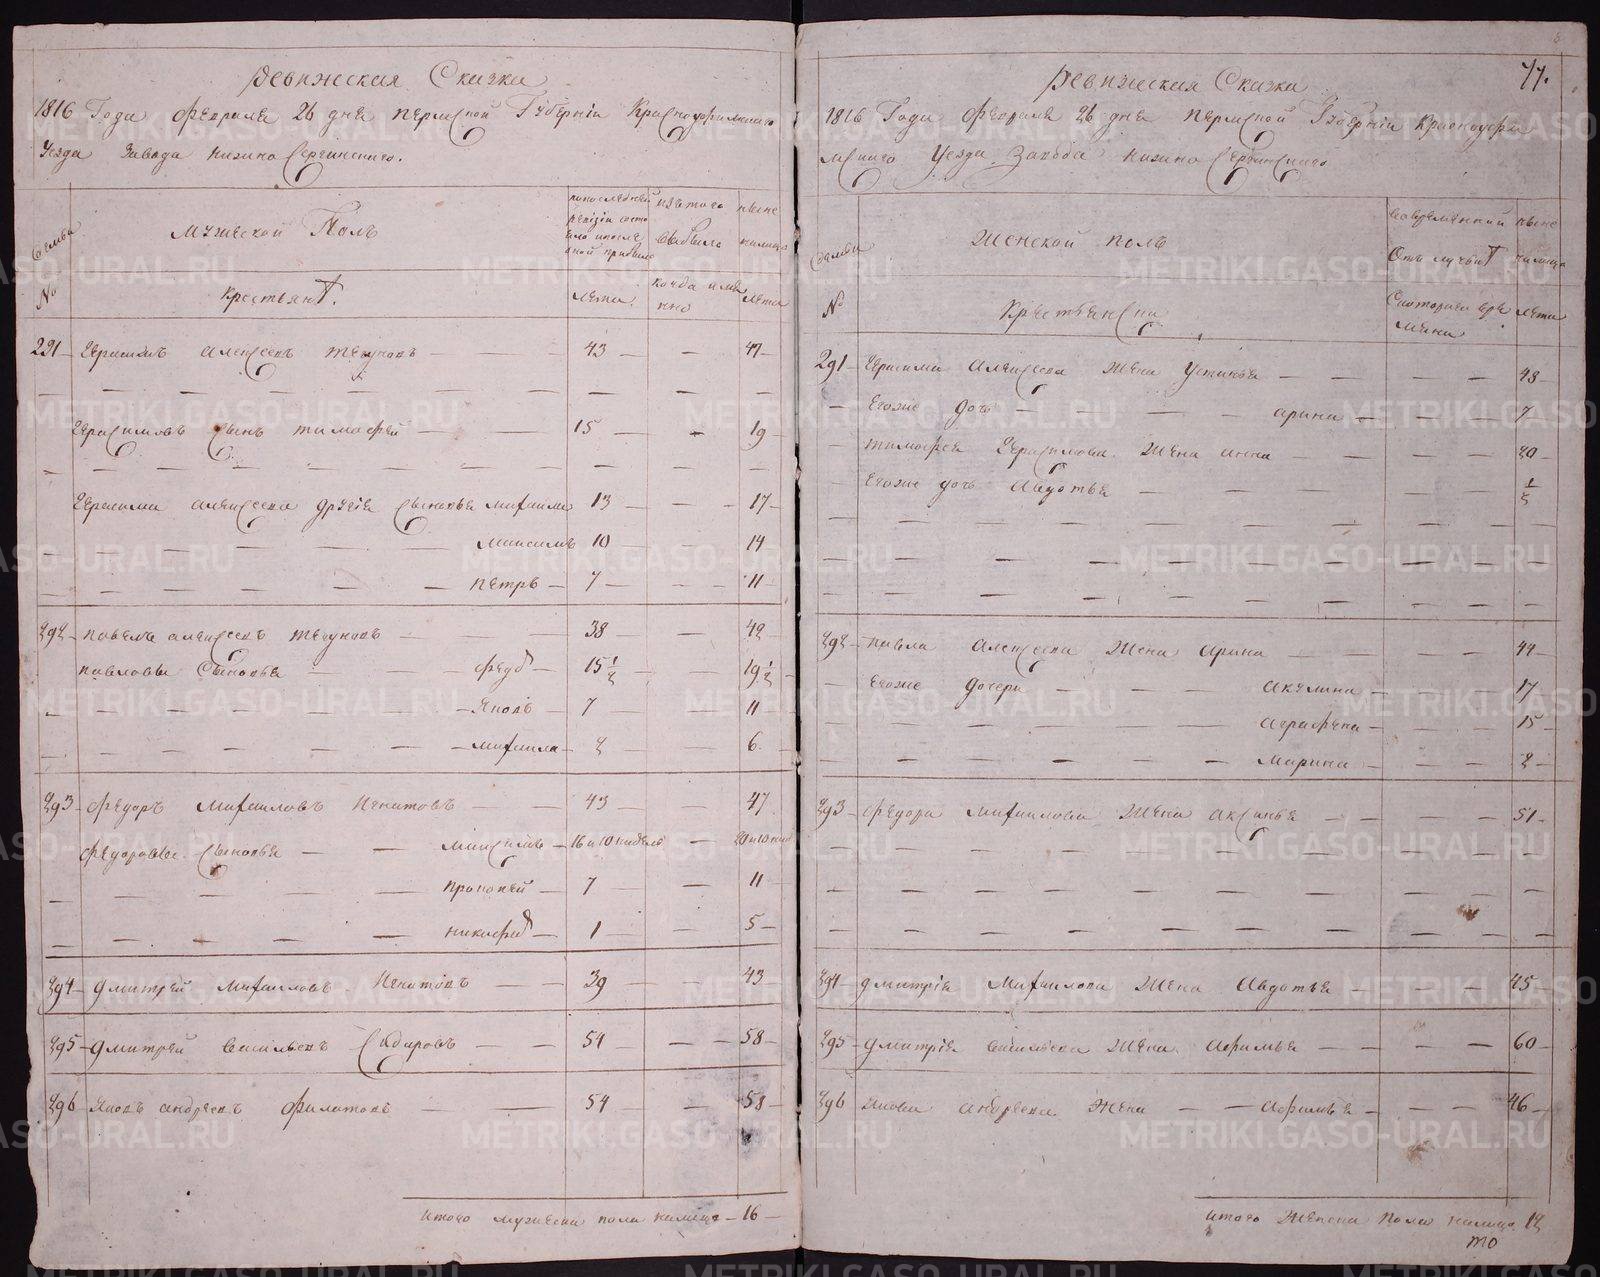 Ревижская Сказка
1816 Года Февраля 26 дня пермской Губернiи Красноуфимскаго
Уезда Завода нижно Сергинскаго.
Семьи
№
Мужеской Полъ
Крестьянъ.
по последней ревизiи состояло и после оной прибыло
лета.
изъ того выбыло
когда имянно
ныне налицо
лета
291 Герасимъ алексеевъ 43 — 47
Герасимовъ Сынъ тимофей 15 — 19
Герасима алексеева другiе Сыновья михаила 13 — 17
максимъ 10 14
петръ 7 11
292 павелъ алексеевъ 38 — 42
павловы Сыновья федоръ 15 1/2 19 1/2
Яковъ 7 11
михаила 2 6.
293 Федоръ михаиловъ Игнатовъ 43 47
Федоровы Сыновья максимъ 16 и 10 недель 20 и 10 нед
прокопей 7 11
никифоръ 1 5
294 дмитрей михаиловъ Игнатовъ 39 43
295 дмитрей васильевъ Сидаровъ 54 58
296 Яковъ андреевъ Филатовъ 54 58
итого мужеска пола налицо 16
77.
Ревижская Сказка
1816 Года февраля 26 дня пермской Губернiи Красноуфи
мскаго Уезда Завода нижно Сергинскаго
Семьи
№
Женской полъ
Крестьянска
во временной отлучке
Скотораго времени
ныне налицо
лета
291 Герасима алексеева Жена Устинья 48
Егоже дочь арина 7
тимофея Герасимова Жена анна 20
Егоже дочь авдотья 1/2
292 павла алексеева Жена арина 44
Егоже дочери акулина 17
аграфена 15
марина 2
293 федора михаилова Жена аксинья 51
294 дмитрiя михаилова Жена авдотья 45
295 дмитрiя васильева Жена афимья 60
296 Якова андреева Жена афимья 46
итого Женска пола налицо 12
то